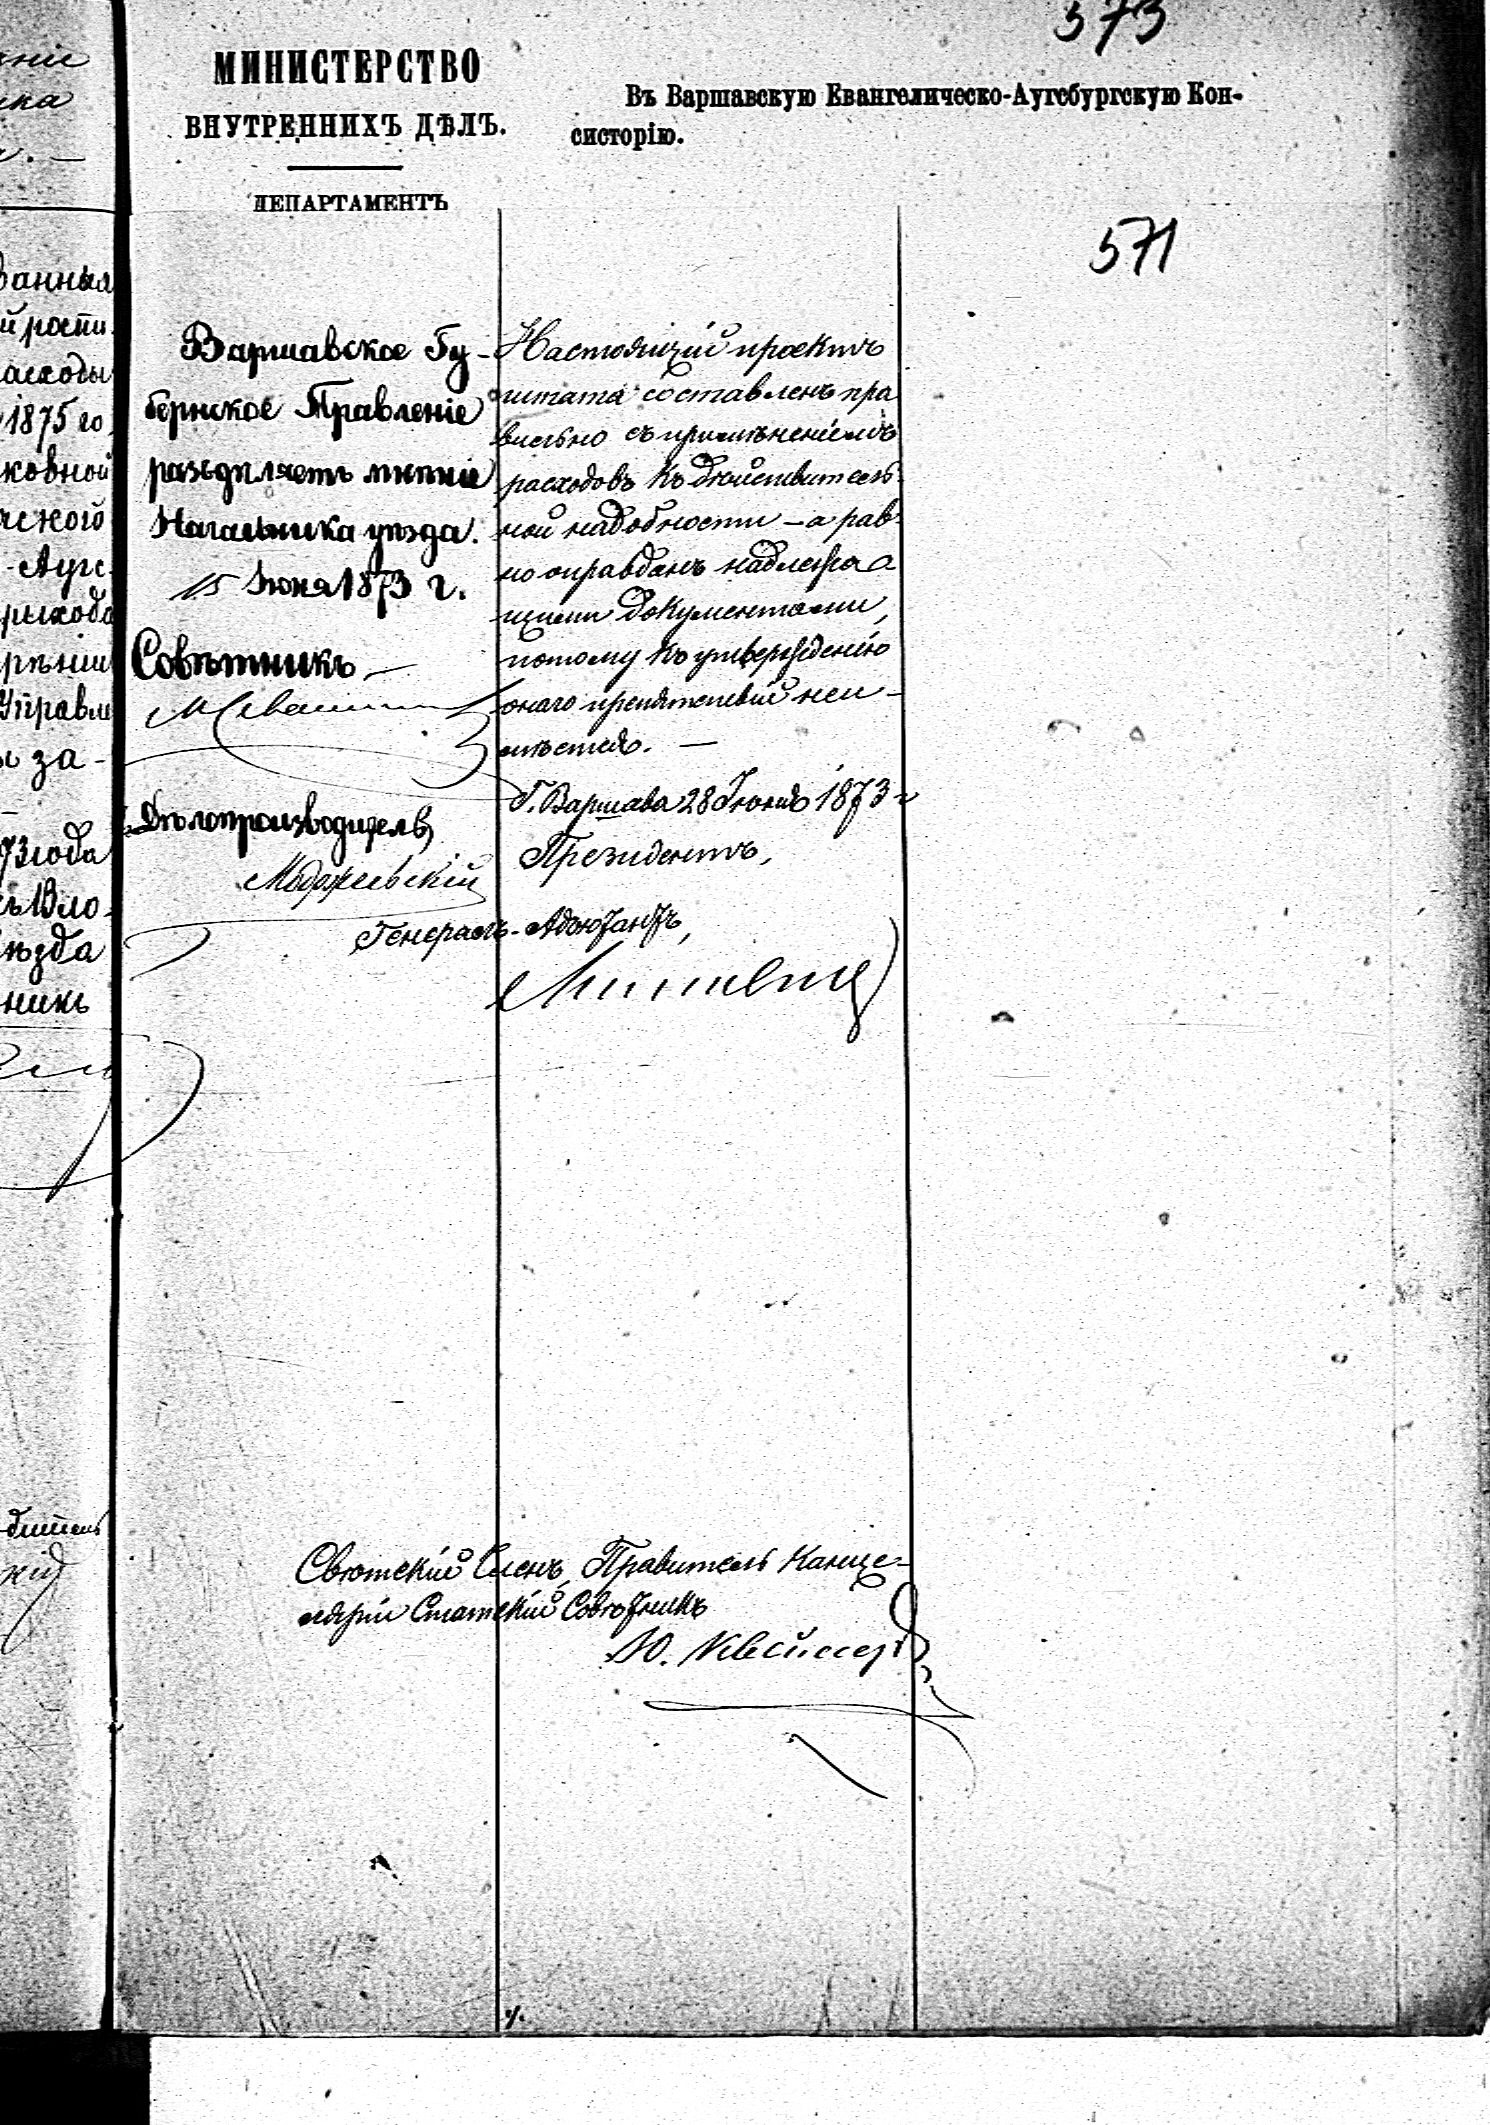 573
МИНИСТЕРСТВО
ВНУТРЕННИХЪ ДѢЛЪ.
ДЕПАРТАМЕНТЪ
Въ Варшавскую Евангелическо-Аугсбургскую Кон-
систорію.
571
ванныя
й роспи
асходы
1875 го
ковной
ческого
-Аугс
Управле
за-
73 года
Вло-
ѣзда
никъ
Варшавское Гу-
бернское Правленіе
раздѣляетъ мнѣніе
Начальника уѣзда.
15 Іюня 1873 г.
Совѣтникъ
Дѣлопроизводитель,
Настоящій проектъ
штата составленъ пра
вильно съ примѣненіемъ
расходовъ къ дѣйствитель-
ной надобности – а рав-
но оправданъ надлежа
щими документами,
потому къ утвержденію
онаго препятствій неи-
мѣется. —
Г. Варшава 28 Іюня 1873 г
Президентъ,
Генералъ-Адъютантъ,
Свѣтскій Членъ, Правитель Канце-
лярій Статскій Совѣтникъ
Ю.